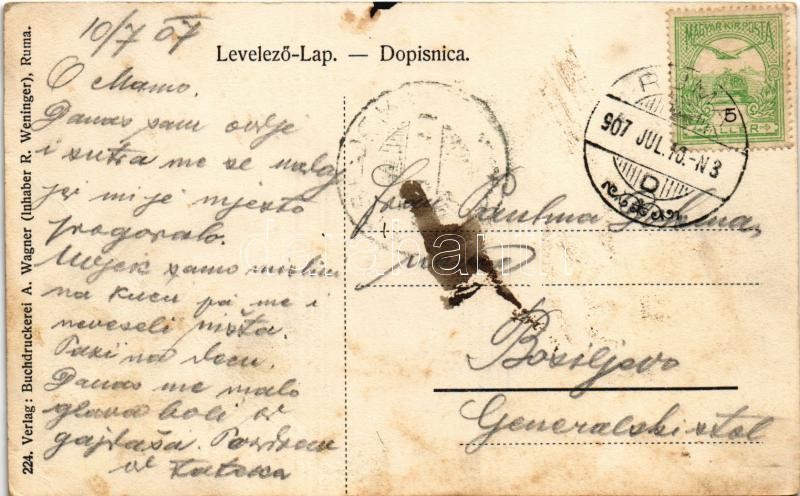 10/7 07
Levelező-Lap. — Dopisnica.
MAGYAR KIR. POSTA
5
907 JUL. 10.-N3
D
O Mamo.
Danas sam ovdje
i sutra me se nadaj
jer mi je mjesto
progoralo.
Uvjek samo mislim
na kucu pa me i
neveseli ništa.
Pazi na decu.
Danas me malo
glava boli od
gajdaša. Pozdrav
od Tateka
Paulina
Bosiljevo
Generalski stol
224. Verlag: Buchdruckerei A. Wagner (Inhaber R. Weninger), Ruma.
darabanth